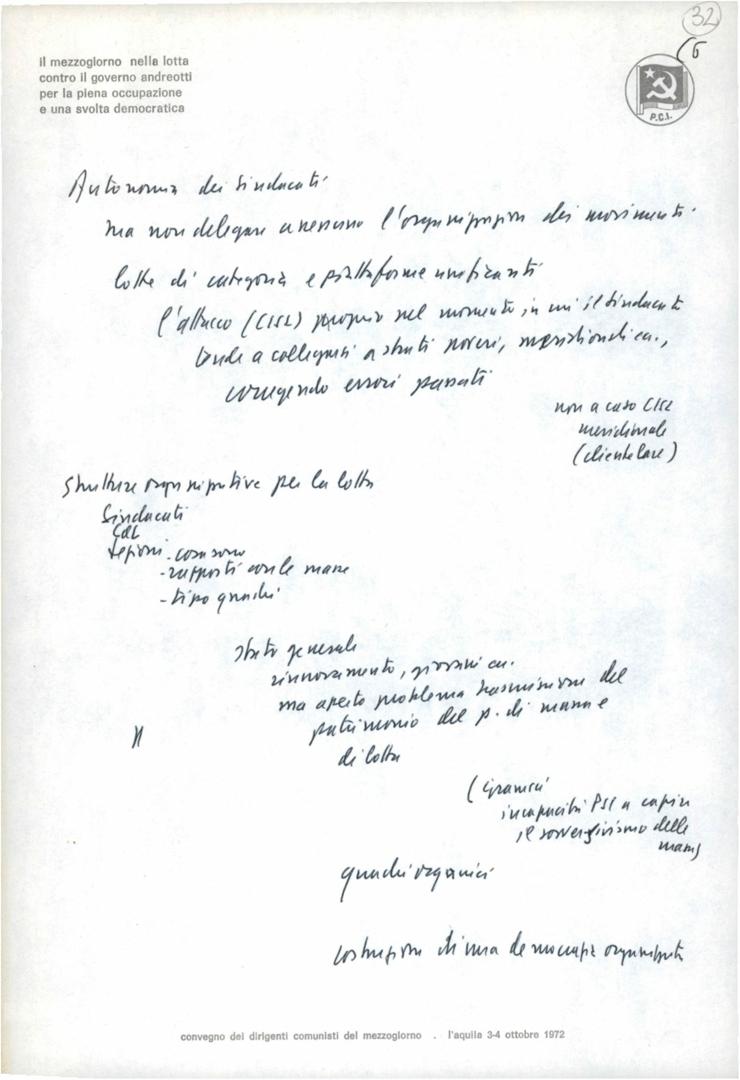 32
6
il mezzogiorno nella lotta
contro il governo andreotti
per la piena occupazione
e una svolta democratica
P.C.I.
Autonomia dei sindacati
ma non delegare a nessuno l'organizzazione dei movimenti
lotte di categoria e piattaforme unificanti
l'attacco (CISL) proprio nel momento in cui il sindacato
tende a collegarsi a strati poveri, meridionali ecc.,
correggendo errori passati
non a caso CISL
meridionale
(clientelare)
Strutture organizzative per la lotta
Sindacati
CdL
Sezioni - cosa sono
- rapporti con le masse
- tipo quadri
stato generale
rinnovamento, giovani ecc.
ma aperto problema trasmissione del
patrimonio del p. di massa e
di lotta
(Gramsci
incapacità PSI a capire
il sovversivismo delle
masse)
quadri organici
costruzione di una democrazia organizzata
convegno dei dirigenti comunisti del mezzogiorno . l'aquila 3-4 ottobre 1972